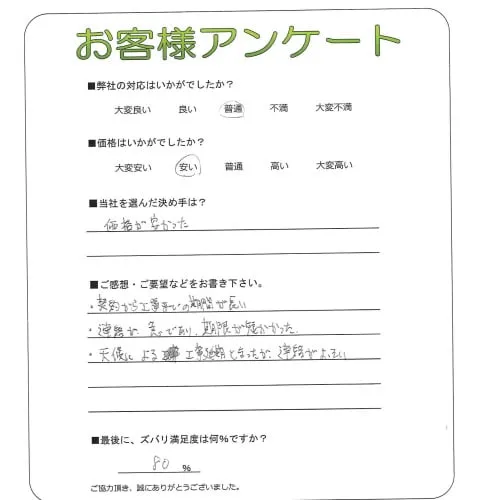 お客様アンケート
■弊社の対応はいかがでしたか？
大変良い 良い 普通 不満 大変不満
■価格はいかがでしたか？
大変安い 安い 普通 高い 大変高い
■当社を選んだ決め手は？
価格が安かった
■ご感想・ご要望などをお書き下さい。
・契約から工事までの期間が長い
・連絡が、急であり、期限が短かかった
・天候による 工事延期となったが、連絡が
■最後に、ズバリ満足度は何％ですか？
80 ％
ご協力頂き、誠にありがとうございました。